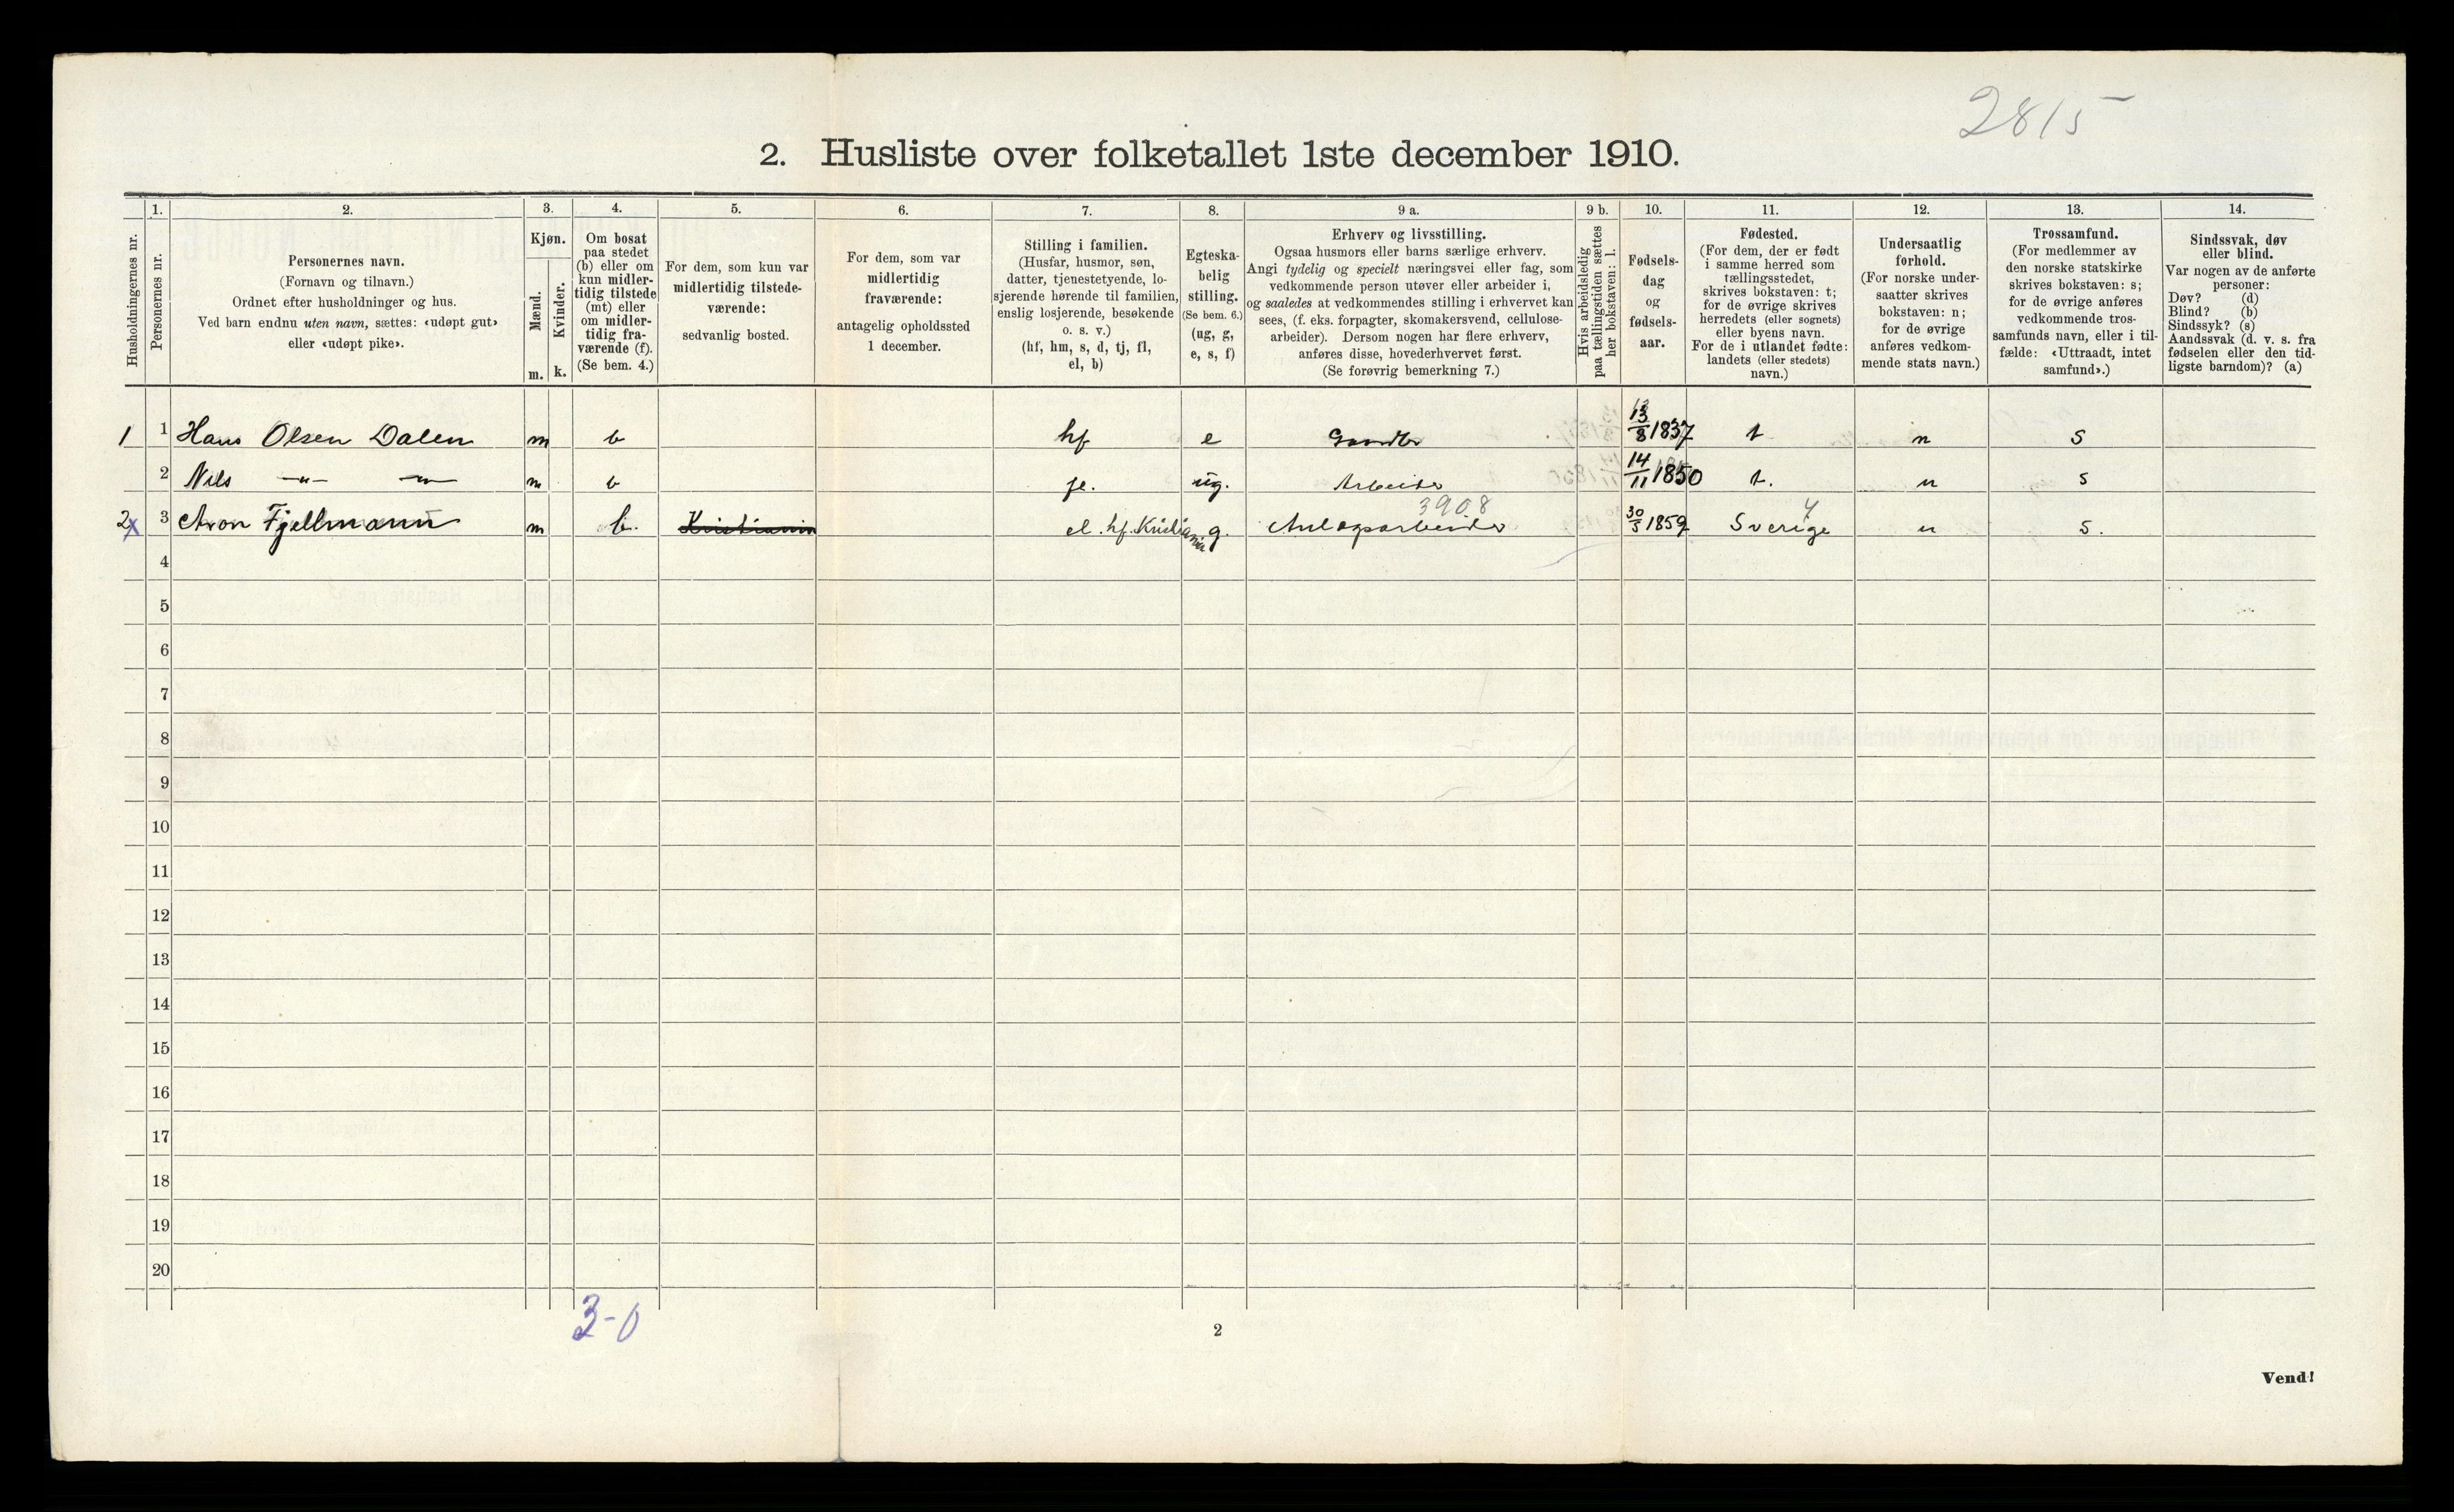 2815
2. Husliste over folketallet 1ste december 1910.
Husholdningernes nr.
1.
Personernes nr.
2.
Personernes navn.
(Fornavn og tilnavn.)
Ordnet efter husholdninger og hus.
Ved barn endnu uten navn, sættes: «udøpt gut»
eller «udøpt pike».
3.
Kjøn.
Mænd.
Kvinder.
m. k.
4.
Om bosat
paa stedet
(b) eller om
kun midler-
tidig tilstede
(mt) eller
om midler-
tidig fra-
værende (f).
(Se bem. 4.)
5.
For dem, som kun var
midlertidig tilstede-
værende:
sedvanlig bosted.
6.
For dem, som var
midlertidig
fraværende:
antagelig opholdssted
1 december.
7.
Stilling i familien.
(Husfar, husmor, søn,
datter, tjenestetyende, lo-
sjerende hørende til familien,
enslig losjerende, besøkende
o. s. v.)
(hf, hm, s, d, tj, fl,
el, b)
8.
Egteska-
belig
stilling.
(Se bem. 6.)
(ug, g,
e, s, f)
9 a.
Erhverv og livsstilling.
Ogsaa husmors eller barns særlige erhverv.
Angi tydelig og specielt næringsvei eller fag, som
vedkommende person utøver eller arbeider i,
og saaledes at vedkommendes stilling i erhvervet kan
sees, (f. eks. forpagter, skomakersvend, cellulose-
arbeider). Dersom nogen har flere erhverv,
anføres disse, hovederhvervet først.
(Se forøvrig bemerkning 7.)
9 b.
Hvis arbeidsledig
paa tællingstiden sættes
her bokstaven: l.
10.
Fødsels-
dag
og
fødsels-
aar.
11.
Fødested.
(For dem, der er født
i samme herred som
tællingsstedet,
skrives bokstaven: t;
for de øvrige skrives
herredets (eller sognets)
eller byens navn.
For de i utlandet fødte:
landets (eller stedets)
navn.)
12.
Undersaatlig
forhold.
(For norske under-
saatter skrives
bokstaven: n;
for de øvrige
anføres vedkom-
mende stats navn.)
13.
Trossamfund.
(For medlemmer av
den norske statskirke
skrives bokstaven: s;
for de øvrige anføres
vedkommende tros-
samfunds navn, eller i til-
fælde: «Uttraadt, intet
samfund».)
14.
Sindssvak, døv
eller blind.
Var nogen av de anførte
personer:
Døv? (d)
Blind? (b)
Sindssyk? (s)
Aandssvak (d. v. s. fra
fødselen eller den tid-
ligste barndom)? (a)
1 1 Hans Olsen Dalen m b hf e 13/8 1837 t n s
2 Nils —"— —"— m b fl. ug. Arbeider 14/11 1850 t. n s
3908 4
2 x 3 Aron Fjellmann m b. Kristiania el. hf. Kristiania g. Anlægsarbeider 30/5 1859 Sverige n s.
4
5
6
7
8
9
10
11
12
13
14
15
16
17
18
19
20
3-0
2
Vend!